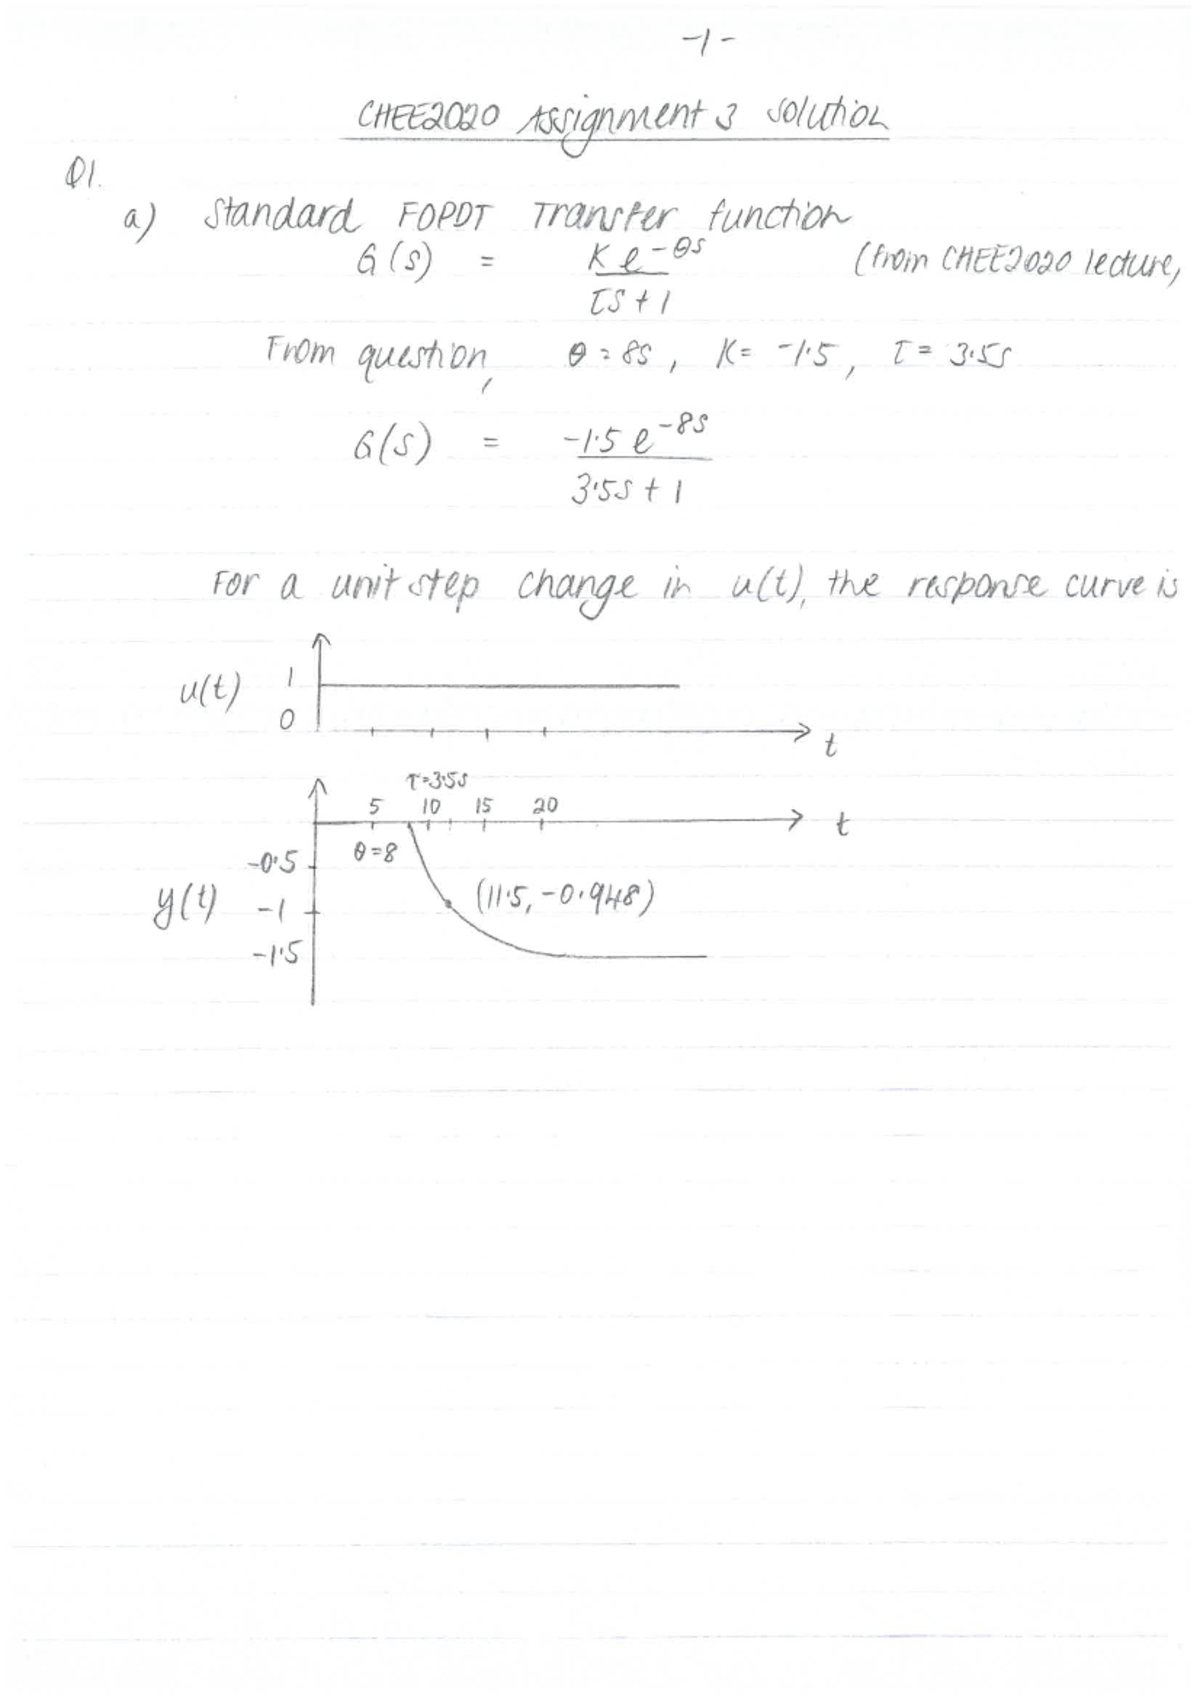 -1-
CHEE2020 Assignment 3 Solution
Q1.
a) Standard FOPDT Transfer function
G(s) = K e^-θs / τs + 1 (from CHEE2020 lecture,
From question, θ = 8s, K = -1.5, τ = 3.5s
G(s) = -1.5 e^-8s / 3.5s + 1
For a unit step change in u(t), the response curve is
u(t) 1
0
t
τ=3.5s
5 10 15 20
t
θ=8
-0.5
y(t) -1 (11.5, -0.948)
-1.5